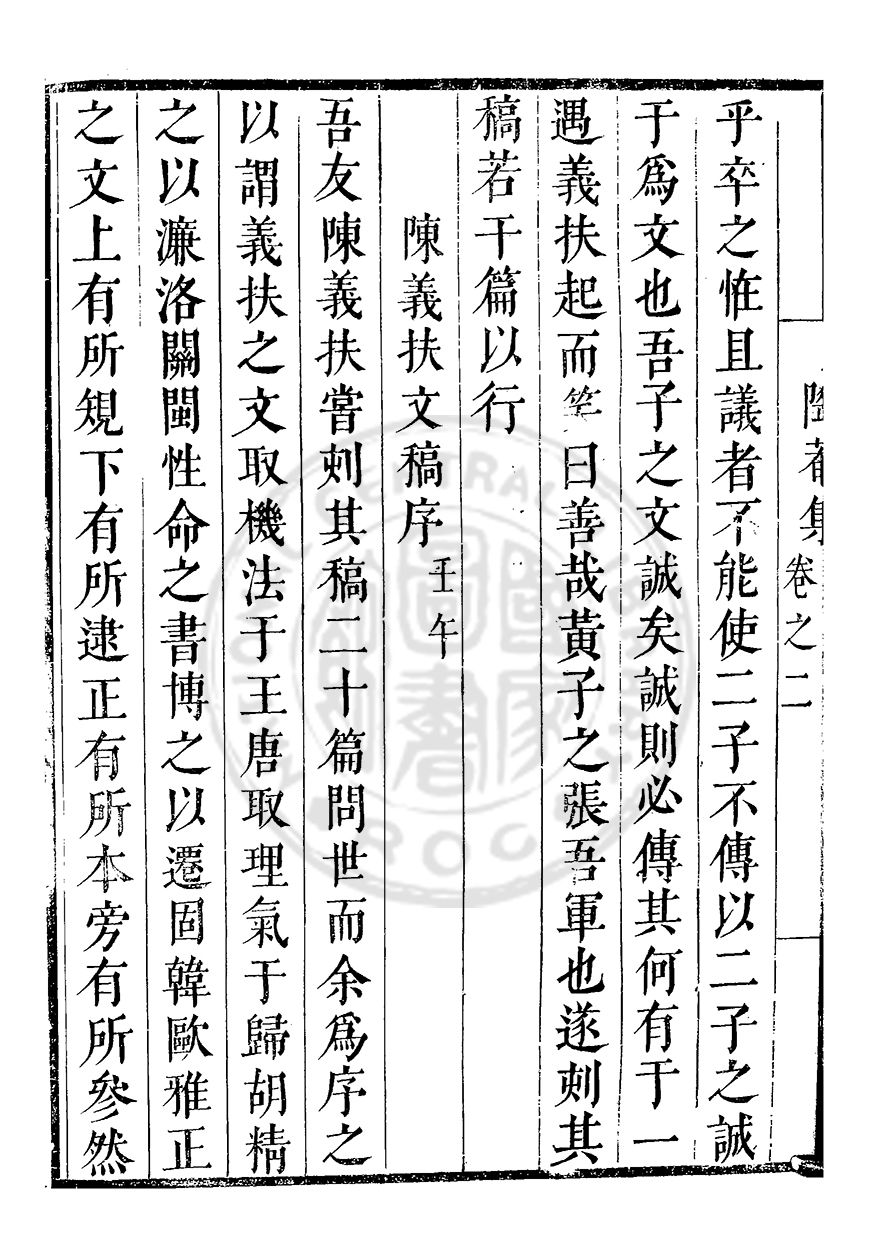 陶菴集 卷之二
乎卒之恠且議者不能使二子不傳以二子之誠
于爲文也吾子之文誠矣誠則必傳其何有于一
遇義扶起而笑曰善哉黃子之張吾軍也遂刻其
稿若干篇以行
陳義扶文稿序 壬午
吾友陳義扶嘗刻其稿二十篇問世而余爲序之
以謂義扶之文取機法于王唐取理氣于歸胡精
之以濂洛關閩性命之書博之以遷固韓歐雅正
之文上有所規下有所逮正有所本旁有所參然